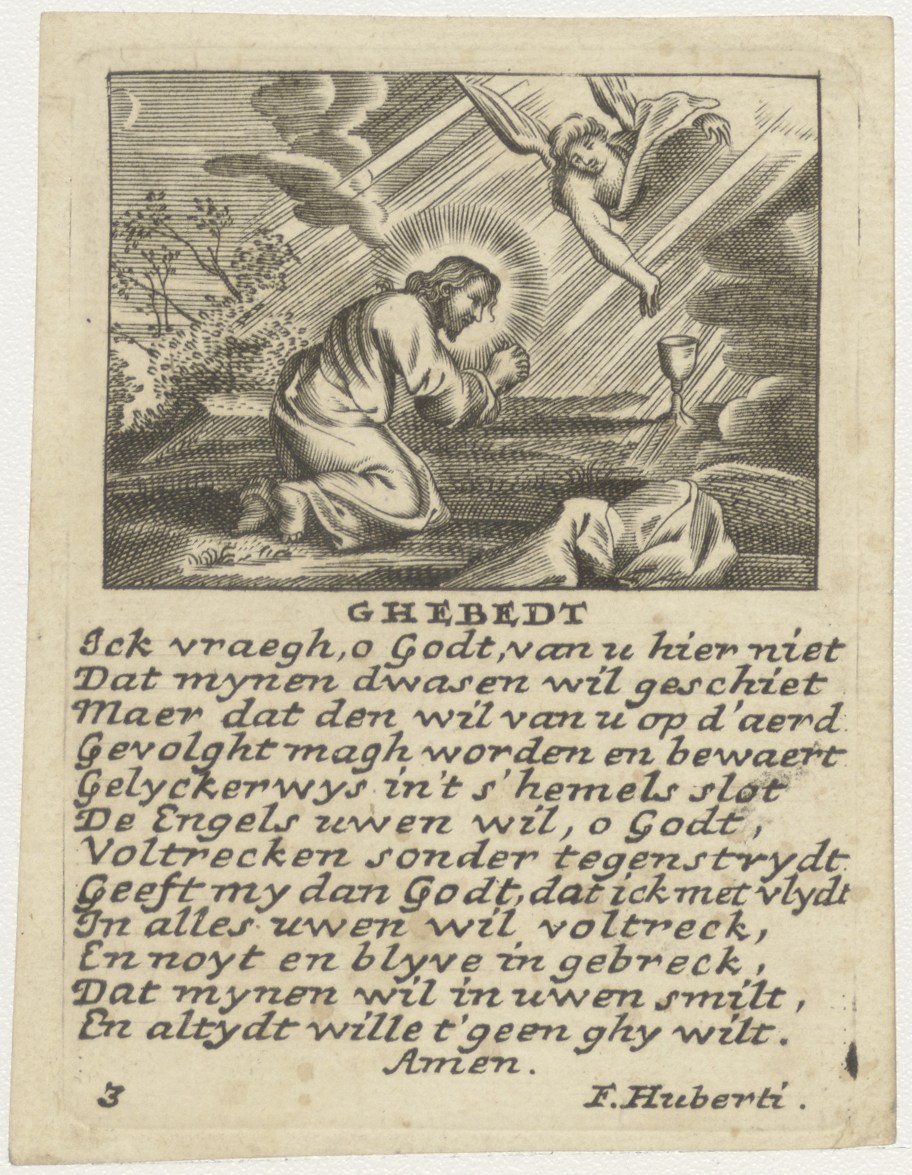 GHEBEDT
Ick vraegh, o Godt, van u hier niet
Dat mynen dwasen wil geschiet
Maer dat den wil van u op d'aerd
Gevolght magh worden en bewaert
Gelyckerwys in't s'hemels slot
De Engels uwen wil, o Godt,
Voltrecken sonder tegenstrydt
Geeft my dan Godt, dat ick met vlydt
In alles uwen wil voltreck,
En noyt en blyve in gebreck,
Dat mynen wil in uwen smilt,
En altydt wille t'geen ghy wilt.
Amen.
3 F. Huberti.